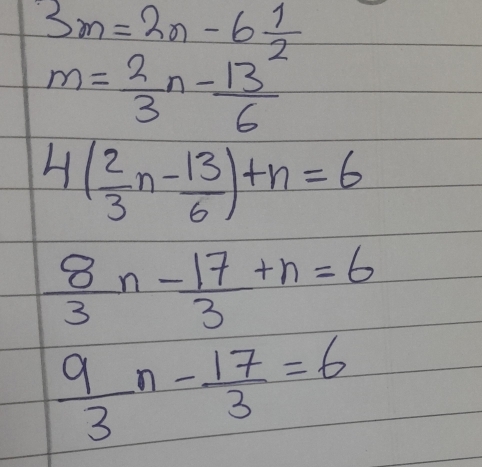 3m = 2n - 6 1/2
m = 2/3 n - 13/6
4(2/3 n - 13/6) + n = 6
8/3 n - 17/3 + n = 6
9/3 n - 17/3 = 6